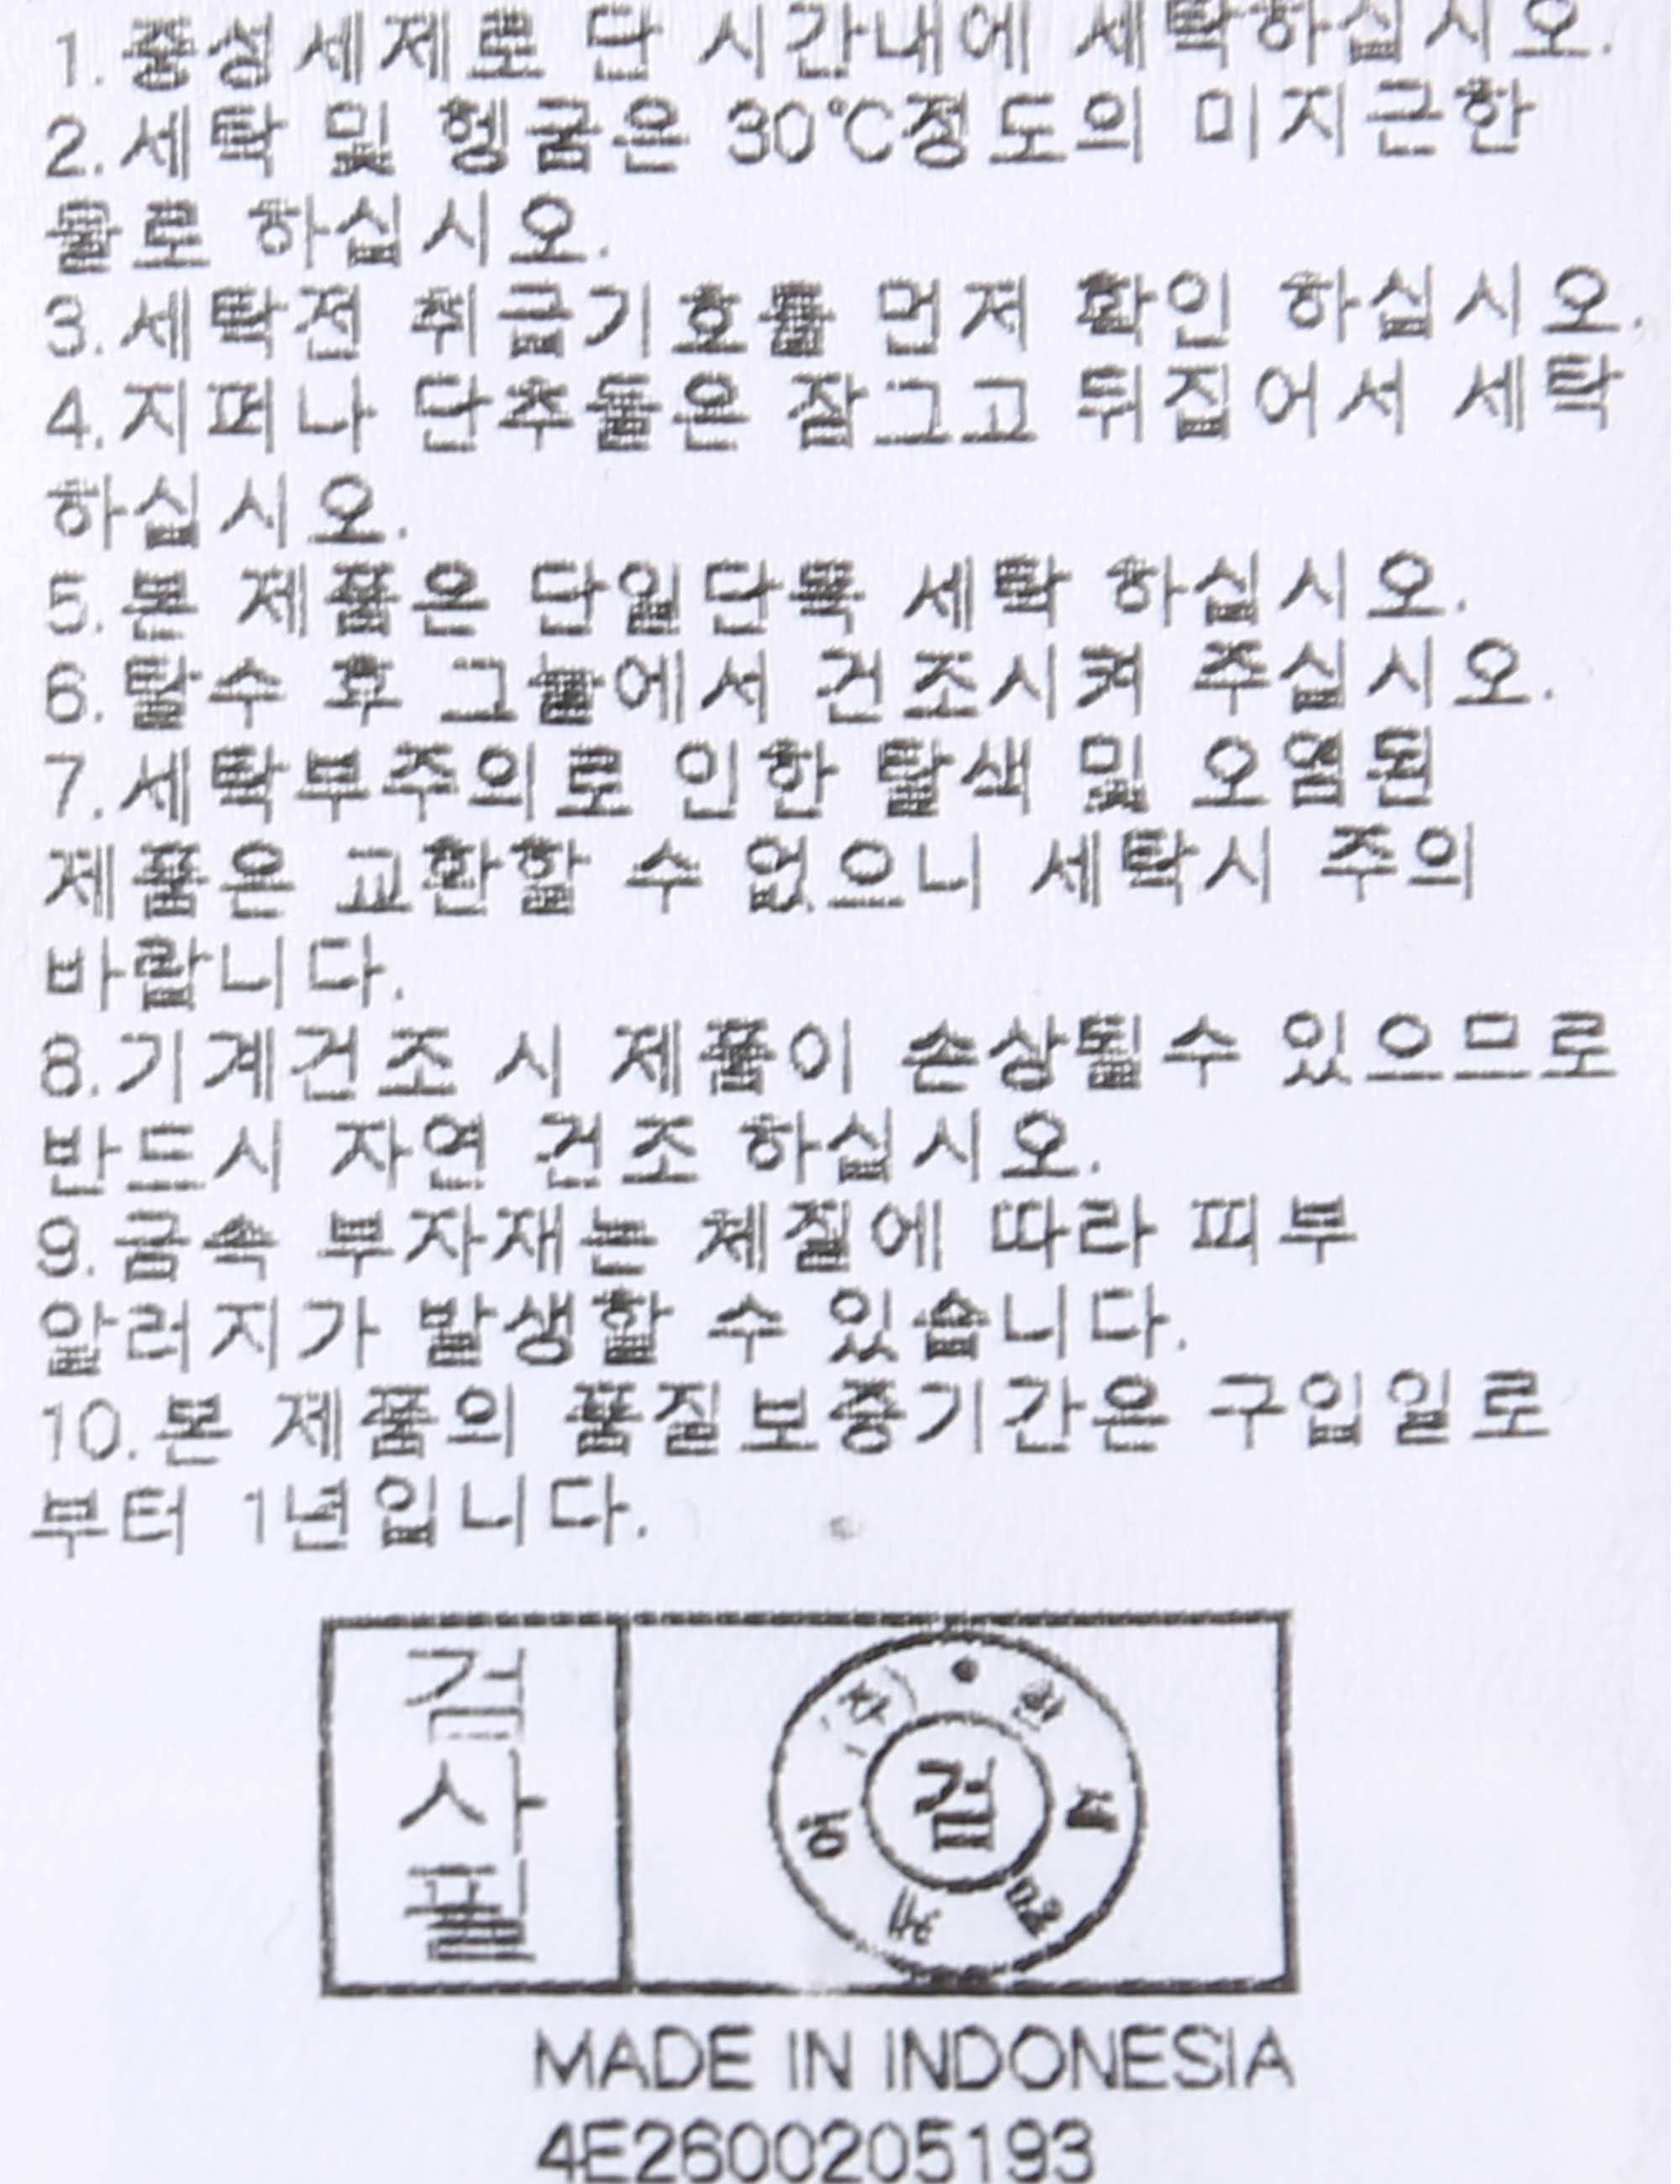 1.중성세제로 단 시간내에 세탁하십시오.
2.세탁 및 헹굼은 30℃정도의 미지근한
물로 하십시오.
3.세탁전 취급기호를 먼저 확인 하십시오.
4.지퍼나 단추들은 잠그고 뒤집어서 세탁
하십시오.
5.본 제품은 단일단독 세탁 하십시오.
6.탈수 후 그늘에서 건조시켜 주십시오.
7.세탁부주의로 인한 탈색 및 오염된
제품은 교환할 수 없으니 세탁시 주의
바랍니다.
8.기계건조 시 제품이 손상될수 있으므로
반드시 자연 건조 하십시오.
9.금속 부자재는 체질에 따라 피부
알러지가 발생할 수 있습니다.
10.본 제품의 품질보증기간은 구입일로
부터 1년입니다.
검
사
필
검
MADE IN INDONESIA
4E2600205193